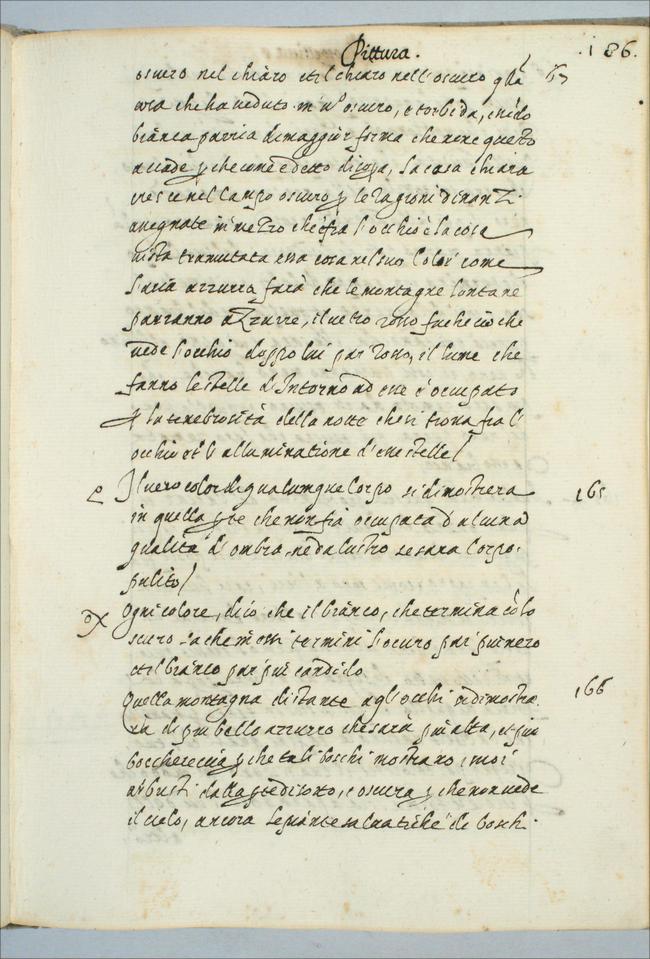 Pittura.
.186.
oscuro nel chiaro et il chiaro nell'oscuro
cosa che ha veduto in oscuro, e torbida,
bianca paria di maggior forma che non e questo
accade p che come è detto di sopra, la cosa chiara
cresce nel Campo oscuro p le ragioni dinanzi
assegnate
vista tramutata essa cosa nel suo Color' come
l'aria azzurra farà che le montagne lontane
parranno azzurre, il vetro rosso fa che ciò che
vede l'occhio doppo lui par rosso, il lume che
fanno le stelle d'Intorno ad esse è occupato
p la tenebrosità della notte che si trova fra l'
occhio et l'alluminatione d'esse stelle/
Il vero color di qualunque Corpo si dimostrera
165
in quella pte che non fia occupata d'alcuna
qualità d'ombra, ne da lustro se sarà Corpo
pulito/
Ogni colore, dico che il bianco, che termina cò lo
scuro fa che in essi termini l'oscuro par più nero
et il bianco par più candido
Quella montagna distante agl'occhi si dimostre
166
rà di più bello azzurro che sarà più alta, et più
boschereccia p che tali boschi mostrano i suoi
arbusti dalla pte di sotto, e oscura p che non vede
il cielo, ancora le piante salvatiche de boschi